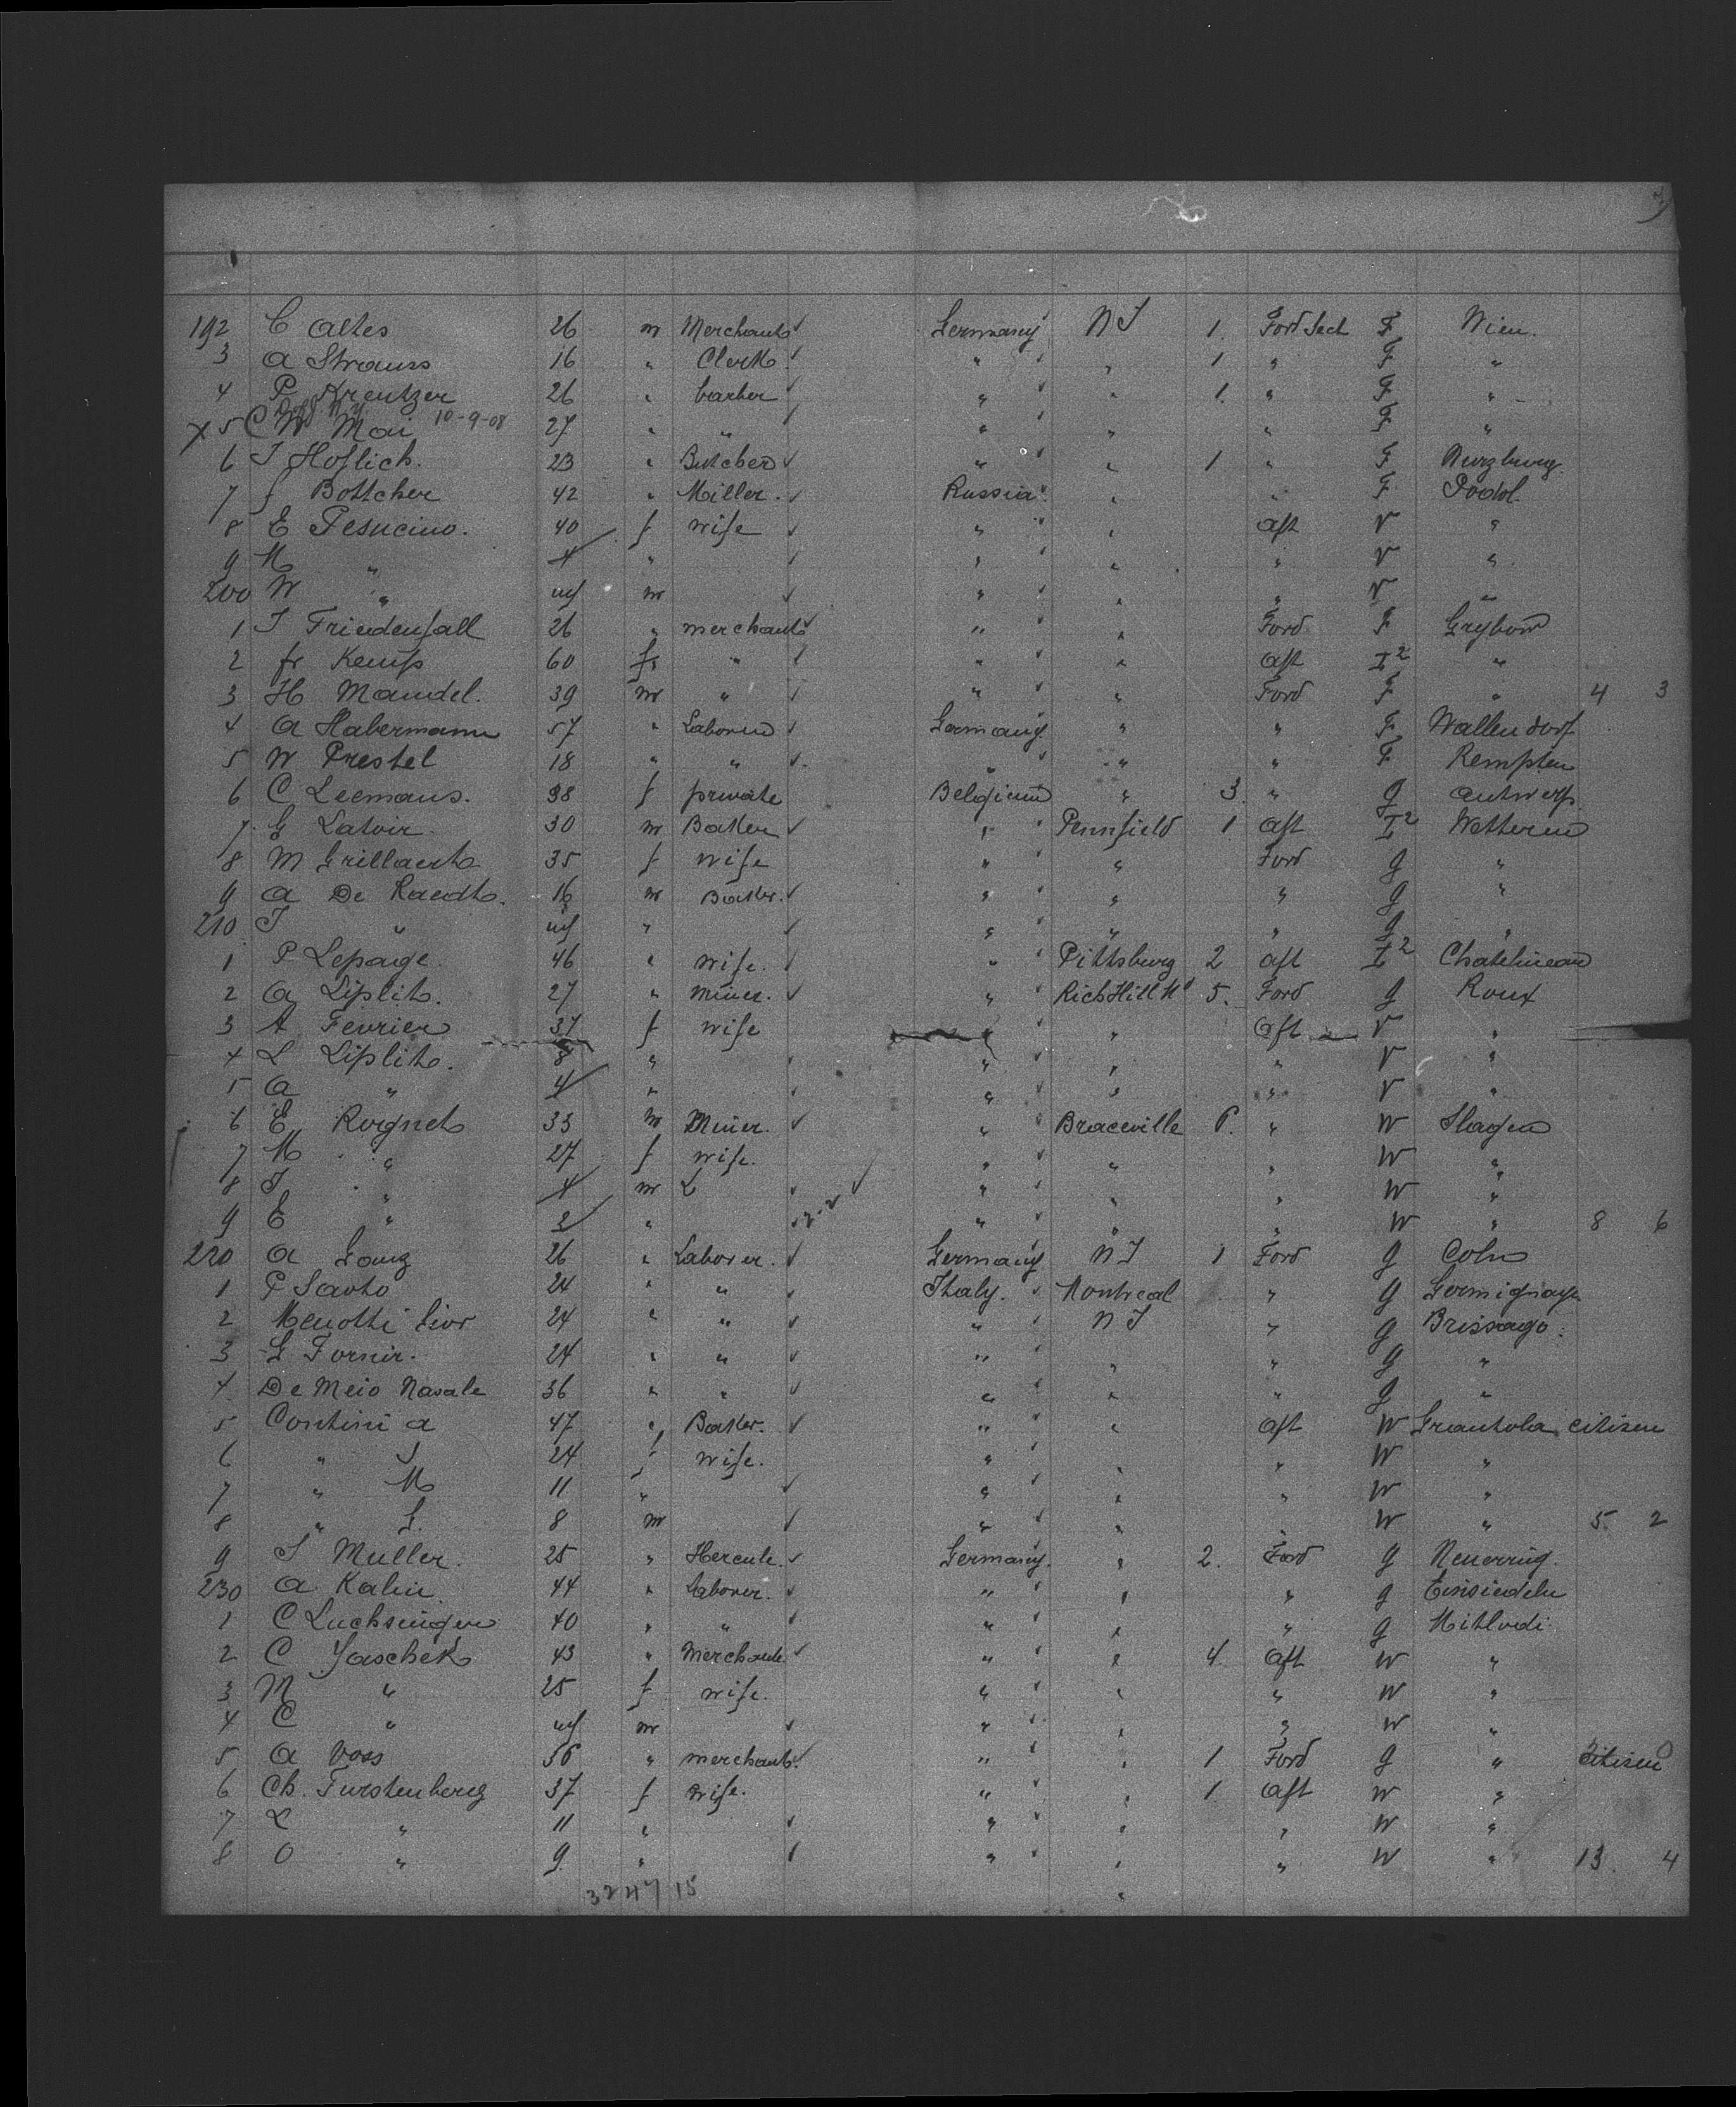 192 C Altes 26 m Merchant Germany NY 1. Ford Sect F Wien.
3 A Strauss 16 " Clerk " " 1 " F "
4 P Kreutzer 26 " barber " " 1. " F "
10-9-08
x 5 C W Mai 27 " " " " " F "
6 J Hoflich. 23 " Butcher " " 1 " F Wurzburg.
7 J Bottcher 42 " Miller. Russia " " F Podol.
8 E Pesucino. 40 f wife " " aft V "
9 M " 4 " " " " V "
200 W " inf m " " " V "
1 J Friedenfall 26 " merchant " " Ford F Grybow
2 fr Kemp 60 f " " " aft I2 "
3 H Mandel. 39 m " " " Ford F " 4 3
4 A Habermann 57 " Laborer Germany " " F Wallendorf
5 W Prestel 18 " " " " " F Kempten
6 C Leemans. 38 f private Belgium " 3. " g Antwerp.
7 E Latoir 30 m Baker " Pennfield 1 aft I2 Wetteren
8 M Grillaert 35 f wife " " Ford g "
9 A De Raedt. 16 m Baker. " " " g "
210 J " inf " " " " g "
1 P Lepage. 46 " wife. " Pittsburg 2 aft I2 Chatelineau
2 A Liplit. 27 " miner. " Rich Hill 5. Ford g Roux
3 A Fevrier 37 f wife " " aft V "
4 L Liplit. 8 " " " " V "
5 A " 4 " " " " V "
6 E Rognet 33 m Miner. " Braceville 6. " W Slagen
7 M " 27 f wife. " " " W "
8 J " 4 m L " " " W "
9 E " 2 " " " " W " 8 6
220 A Ganz 26 " Laborer. Germany NY 1 Ford g Coln
1 P Savto 24 " " Italy. Montreal " g Germignaga
2 Menotti Lior 24 " " " NY " g Brissago.
3 G Fornir. 24 " " " " " g "
4 De Meio Nasale 36 " " " " " g "
5 Contini A 47 " Baker. " " aft W Grantola citisen
6 " J 24 f wife. " " " W "
7 " M 11 " " " " W "
8 " G. 8 m " " " W " 5 2
9 J Muller. 25 " Hercule. Germany. " 2. Ford g
230 A Kalin 44 " Laborer. " " " g Einsiedeln
1 C Luchsinger 40 " " " " " g Mitlodi
2 C Jaschek 43 " Merchant " " 4. aft W "
3 M " 25 f wife. " " " W "
4 C " inf m " " " W "
5 A Voss 56 " merchant. " " 1 Ford g " citisen
6 Ch. Furstenberg 37 f wife. " " 1. aft W "
7 L " 11 " " " " W "
8 O " 9. " " " " W " 13. 4
3247 15 "